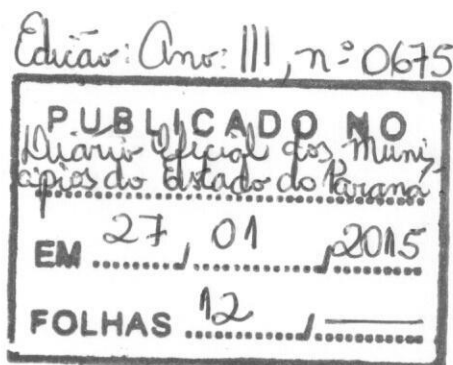 Edicão: Ano: III, nº 0675
PUBLICADO NO
Diário Oficial dos Muni-
cípios do Estado do Paraná
EM 27 / 01 / 2015
FOLHAS 12 /